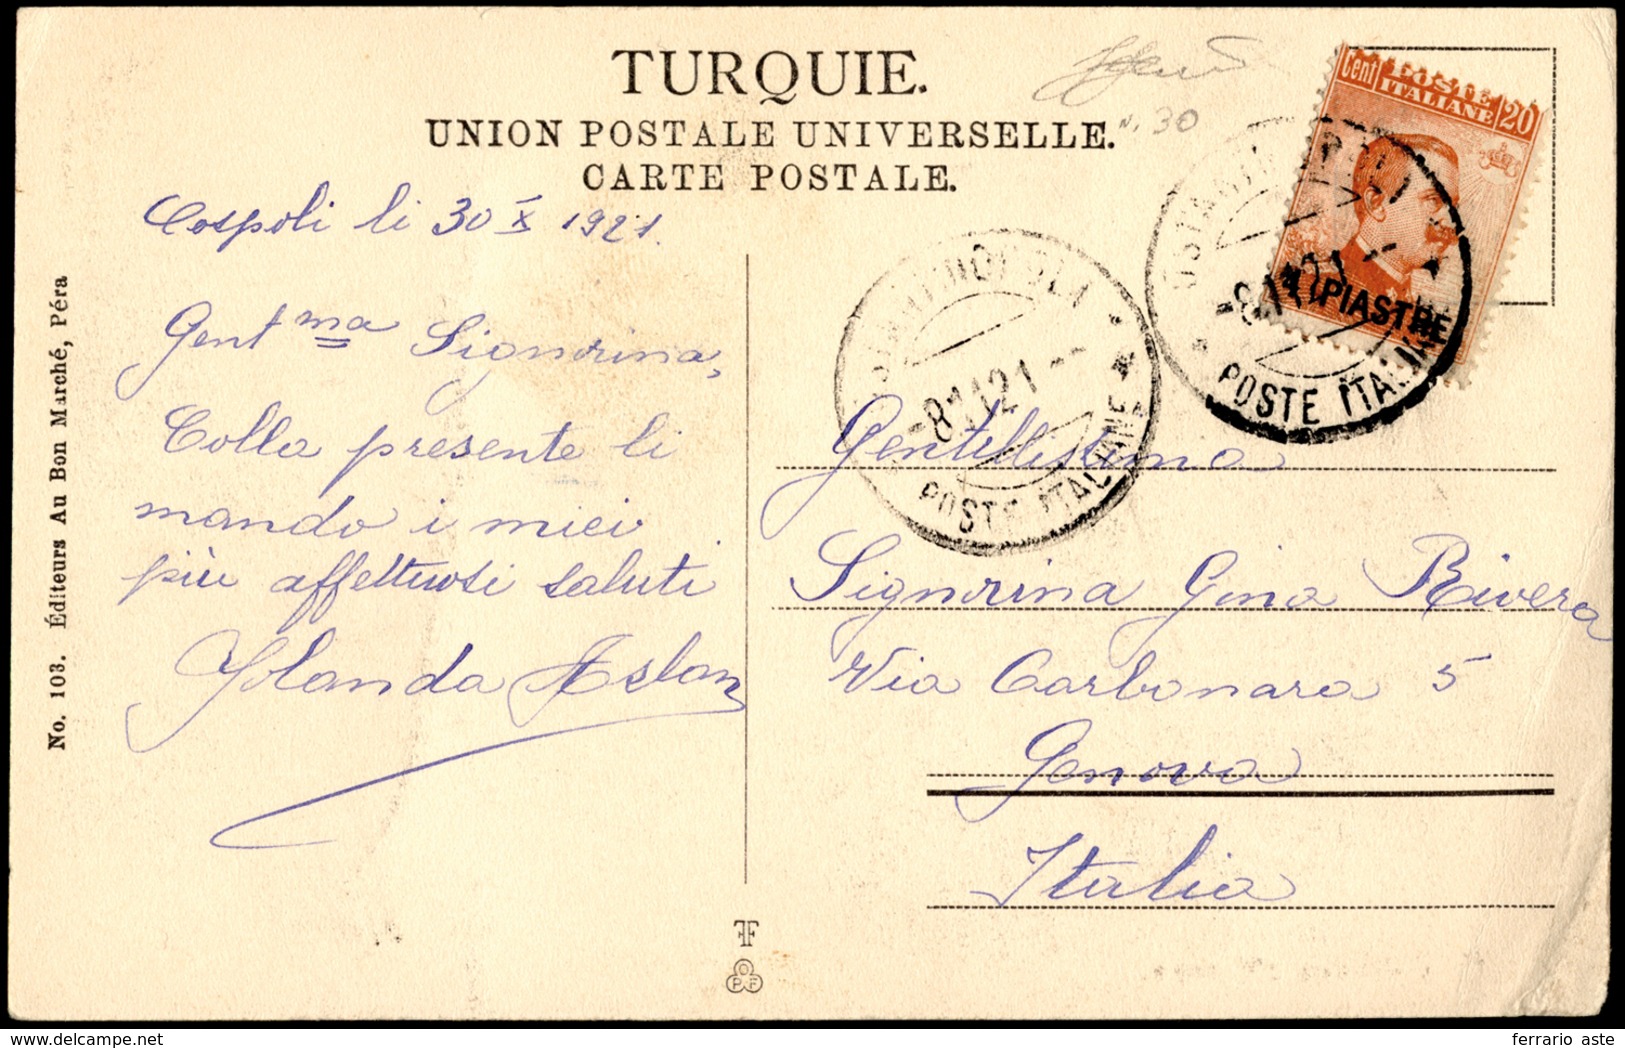 TURQUIE.
UNION POSTALE UNIVERSELLE.
CARTE POSTALE.
N. 30
Cent POSTE ITALIANE 20
PIASTRE
POSTE ITALIANE
-8.11.21--
POSTE ITALIANE
-8.11.21--
Cospoli li 30 X 1921.
Gent ma Signorina,
Colla presente li
mando i miei
più affettuosi saluti
Yolanda Aslan
Gentillissima
Signorina Gina Rivera
Via Carbonara 5
Genova
Italia
No. 103. Éditeurs Au Bon Marché, Péra
FF
OPF
ferrario aste